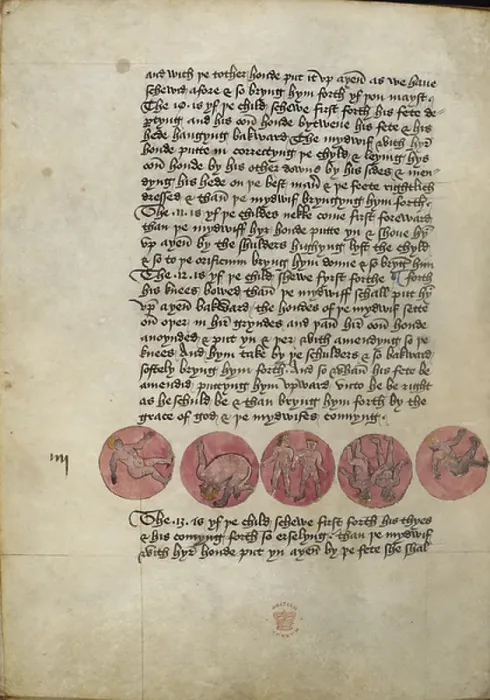 and with þe tother honde put it vp aȝen as we haue
schewd afore & so bryng hym forth yf þou mayst.
The .10. is yf þe child schewe first forth his fete de-
ptyng and his oon honde bytwene his fete & his
hede hangyng bakward The mydwif with hyr
honde putte in correctyng þe chyld & leyng hys
oon honde by his other downe by his sides & men-
dyng his hede on þe best man & þe feete rightlich
dressed & than þe mydwif bryngyng hym forth.
The .11. is yf þe childes nekke come first foreward
than þe mydwiff hyr honde putte yn & shoue hȳ
vp aȝen by the shulders lyft the chyld
& so to þe orificium bryng hym doune & so bryng him
The .12. is yf þe child shewe fyrst forthe forth
his knees bowed than þe mydwiff schall put hȳ
vp aȝen bakward the hondes of þe mydwif sette
on oper in hir gryndes and þan hir oon honde
anoynded & put yn & þer with amendyng so þe
knees And hym take by þe schulders & so bakward
softely bryng hym forth. And so whan his fete be
amendid puttyng hym vpward vnto he be right
as he schuld be & than bryng hym forth by the
grace of god & þe mydwifes connyng.
iiij
The .13. is yf þe child schewe first forth his thyes
& his comyng forth so erselyng. than þe mydwif
with hyr honde put yn aȝen by þe fete she shal
BRITISH MUSEUM